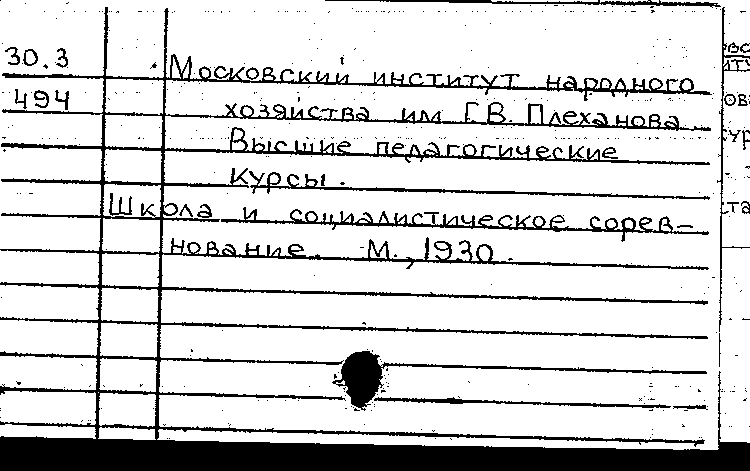 30.3 Московский институт народного
494 хозяйства им Г.В. Плеханова
Высшие педагогические
курсы.
Школа и социалистическое сорев-
нование. М., 1930.